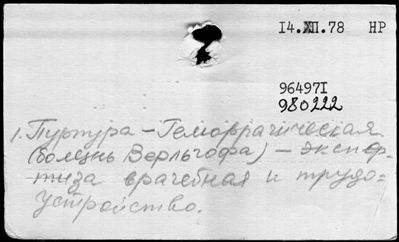 14.XII.78 НР
964971
980222
1. Пурпура – Геморрагическая
(болезнь Верльгофа) – экспер-
тиза врачебная и трудо-
устройство.